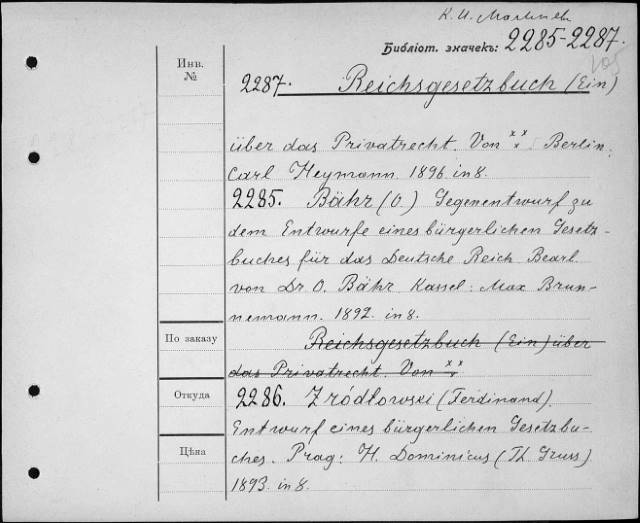 К. И. Малышев
Библіот. значекъ: 2285-2287.
105
Инв.
№
2287. Reichsgesetzbuch (Ein)
über das Privatrecht. Von xxx Berlin:
Carl Heymann. 1896. in 8.
2285. Bähr (O.) Gegenentwurf zu
dem Entwurfe eines bürgerlichen Gesetz-
buches für das Deutsche Reich Bearl.
von Dr O. Bähr Kassel: Max Brun-
nemann. 1892. in 8.
По заказу
Reichsgesetzbuch (Ein) über
das Privatrecht. Von xxx
Откуда
2286. Zródłowski (Ferdinand).
Entwurf eines bürgerlichen Gesetzbu-
ches. Prag: H. Dominicus (Th. Gruss)
Цѣна
1893. in 8.